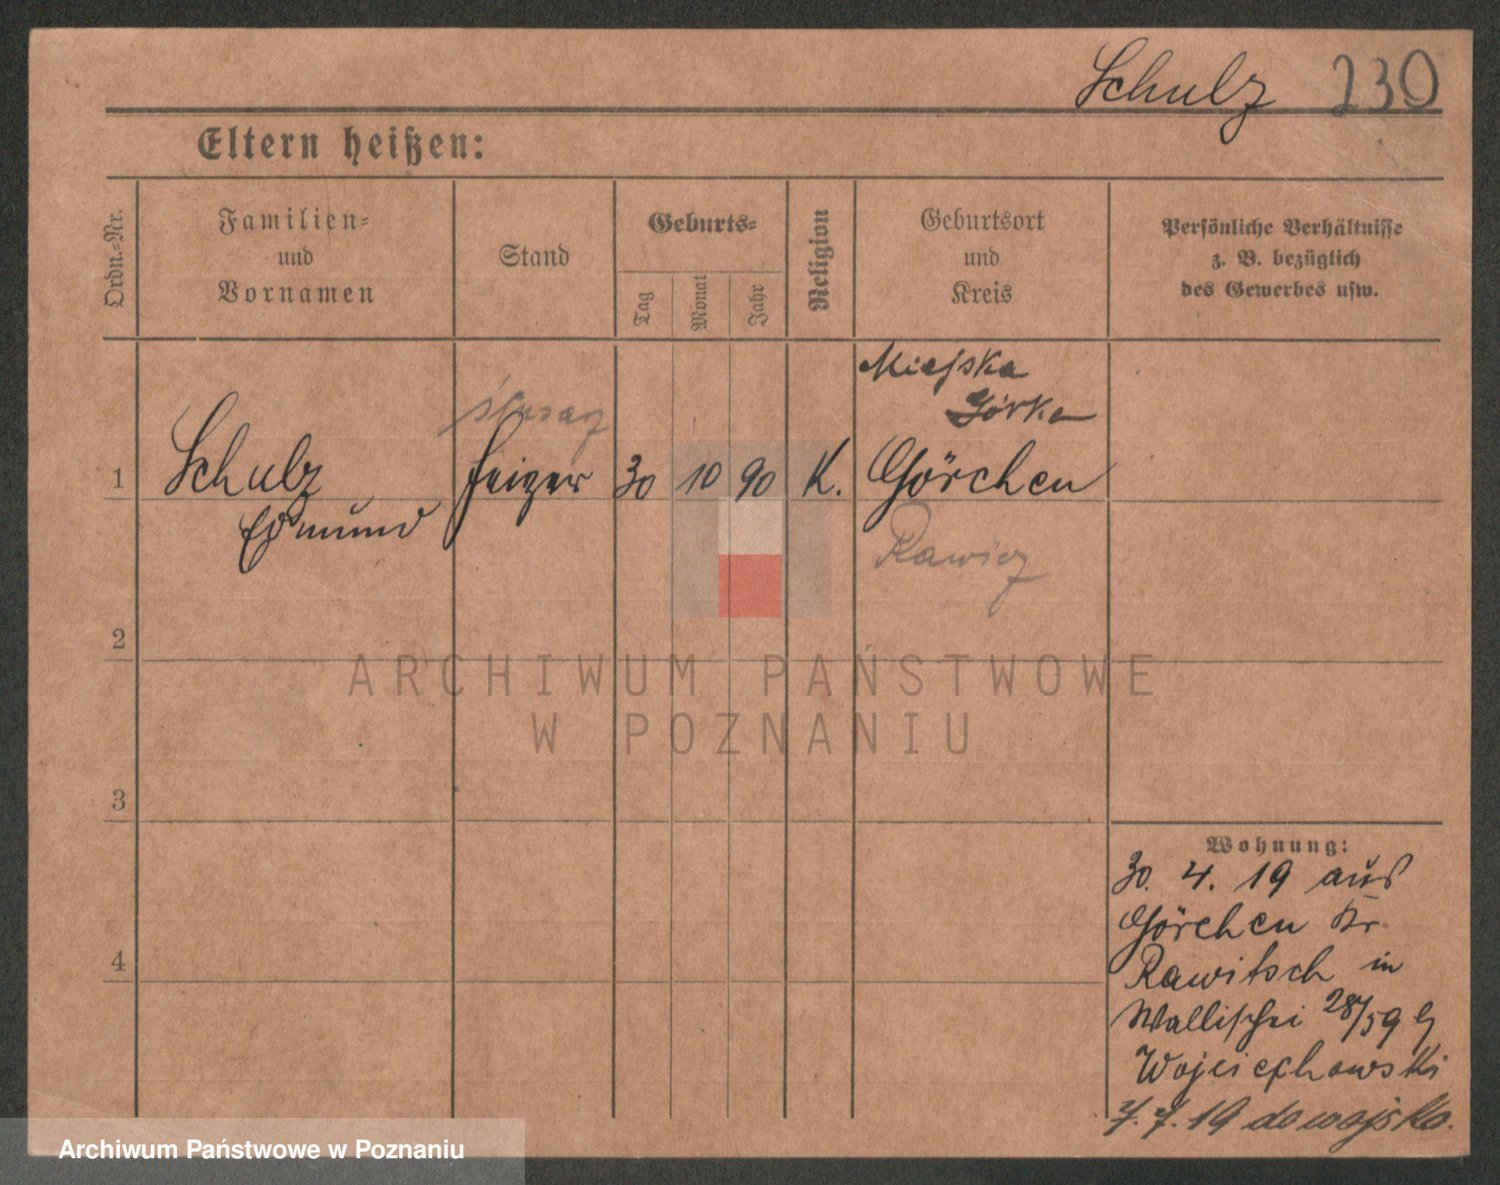 Schulz 230
Eltern heißen:
Ordn.-Nr.
Familien-
und
Vornamen
Stand
Geburts-
Tag
Monat
Jahr
Religion
Geburtsort
und
Kreis
Persönliche Verhältnisse
z. B. bezüglich
des Gewerbes usw.
Miejska
Górka
1 Schulz Heizer 30 10 90 K. Görchen
Edmund
Rawicz
2
3
4
Wohnung:
30. 4. 19 aus
Görchen Kr
Rawitsch in
Wallischei 28/59 b
Wojciechowski
7. 19 do wojska.
ARCHIWUM PAŃSTWOWE
W POZNANIU
Archiwum Państwowe w Poznaniu